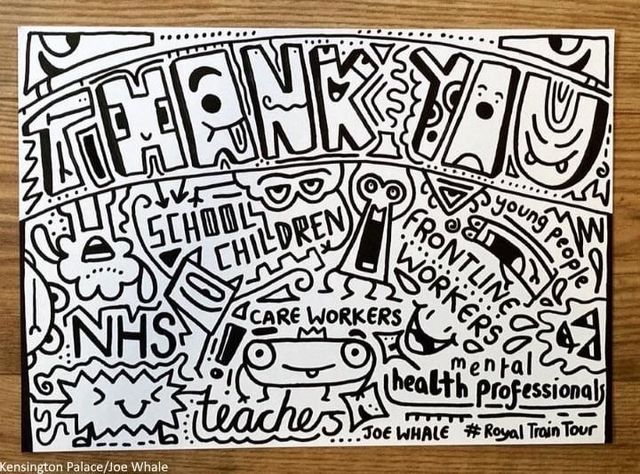 THANK YOU
SCHOOL
CHILDREN
young people
FRONTLINE
WORKERS
NHS
CARE WORKERS
mental
health professionals
teachers
JOE WHALE # Royal Train Tour
Kensington Palace/Joe Whale